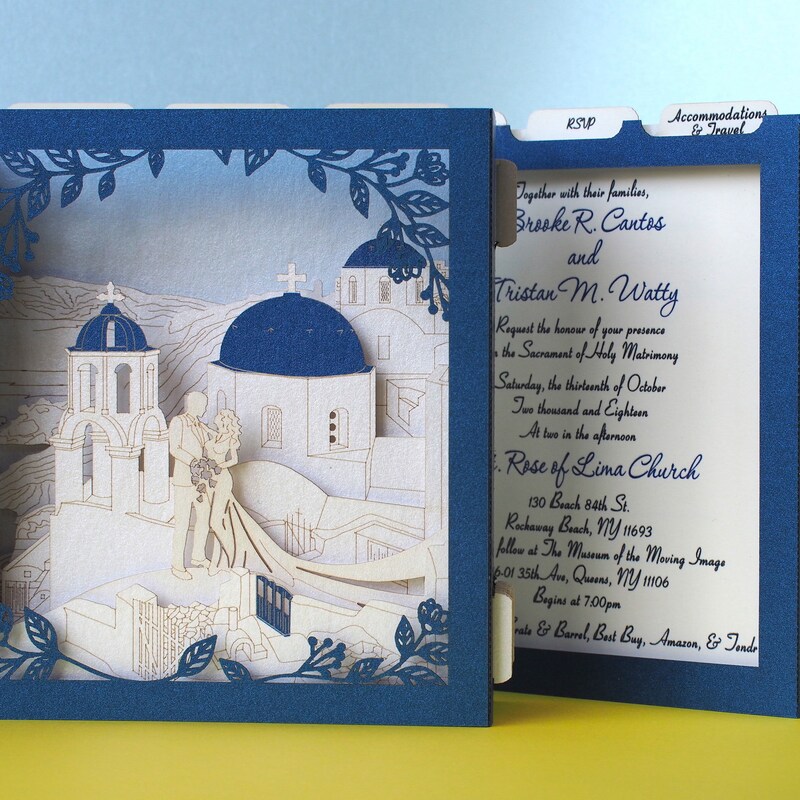 RSVP
Accommodations
& Travel
Together with their families,
Brooke R. Cantos
and
Tristan M. Watty
Request the honour of your presence
the Sacrament of Holy Matrimony
Saturday, the thirteenth of October
Two thousand and Eighteen
At two in the afternoon
Rose of Lima Church
130 Beach 84th St.
Rockaway Beach, NY 11693
follow at The Museum of the Moving Image
35th Ave, Queens, NY 11106
Begins at 7:00pm
& Barrel, Best Buy, Amazon, &